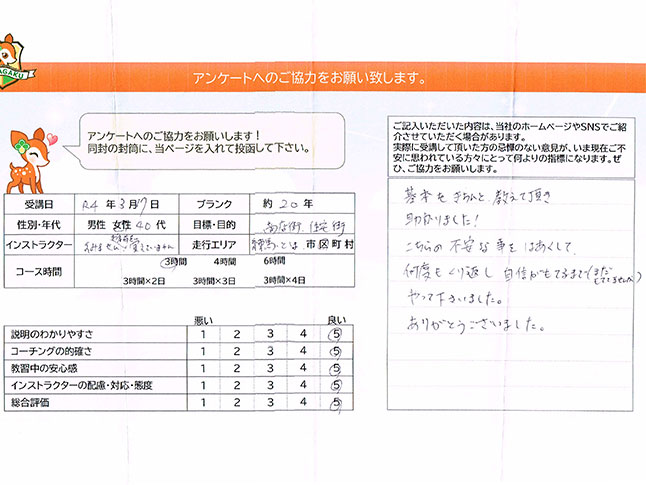 AGAKU
アンケートへのご協力をお願い致します。
アンケートへのご協力をお願いします！
同封の封筒に、当ページを入れて投函して下さい。
受講日 R4 年 3月17日 ブランク 約 20 年
性別・年代 男性 女性 40代 目標・目的 住宅街
インストラクター すみません 覚えていません 走行エリア 練馬 市区町村
コース時間 3時間 4時間 6時間
3時間×2日 3時間×3日 3時間×4日
悪い 良い
説明のわかりやすさ 1 2 3 4 5
コーチングの的確さ 1 2 3 4 5
教習中の安心感 1 2 3 4 5
インストラクターの配慮・対応・態度 1 2 3 4 5
総合評価 1 2 3 4 5
ご記入いただいた内容は、当社のホームページやSNSでご紹
介させていただく場合があります。
実際に受講して頂いた方の忌憚のない意見が、いま現在ご不
安に思われている方々にとって何よりの指標になります。ぜ
ひ、ご協力をお願いします。
基本をきちんと教えて頂き
助かりました！
こちらの不安な事をはあくして
何度もくり返し 自信がもてるまで(まだもててませんが)
やって下さいました。
ありがとうございました。